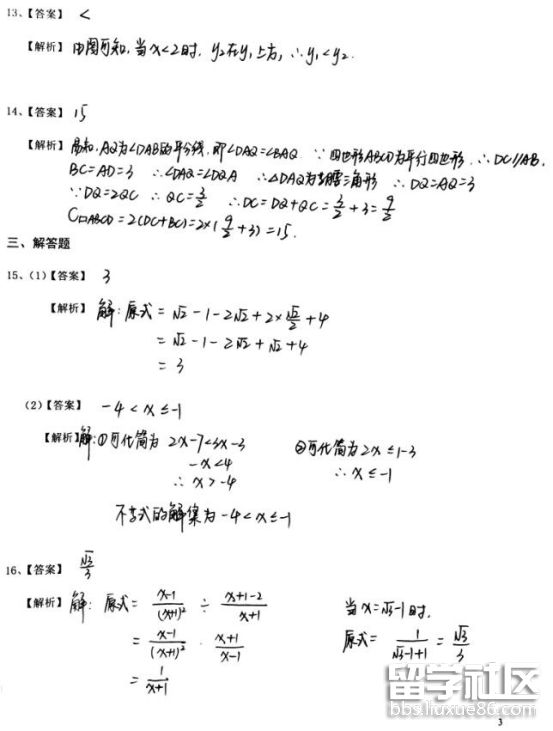 13、【答案】 <
【解析】 由图可知, 当x<2时, y₂在y₁上方, ∴y₁<y₂.
14、【答案】 15
【解析】 易知, AQ为∠DAB的平分线, 即∠DAQ=∠BAQ ∵四边形ABCD为平行四边形, ∴DC//AB,
BC=AD=3 ∴∠DAQ=∠DQA ∴△DAQ为等腰三角形 ∴DQ=AQ=3
∵DQ=2QC ∴QC=3/2 ∴DC=DQ+QC=3/2+3=9/2
C▱ABCD=2(DC+BC)=2×(9/2+3)=15.
三、解答题
15、(1)【答案】 3
【解析】 解: 原式=√2-1-2√2+2×√2/2+4
=√2-1-2√2+√2+4
=3
(2)【答案】 -4<x≤-1
【解析】解:①可化简为 2x-7<3x-3 ②可化简为2x≤1-3
-x<4 ∴x≤-1
∴x>-4
不等式的解集为-4<x≤-1
16、【答案】 √3/3
【解析】 解: 原式=(x-1)/(x+1)² ÷ (x+1-2)/(x+1) 当x=√3-1时,
=(x-1)/(x+1)² · (x+1)/(x-1) 原式=1/(√3-1+1)=√3/3
=1/(x+1)
留学社区
bbs.liuxue86.com
3